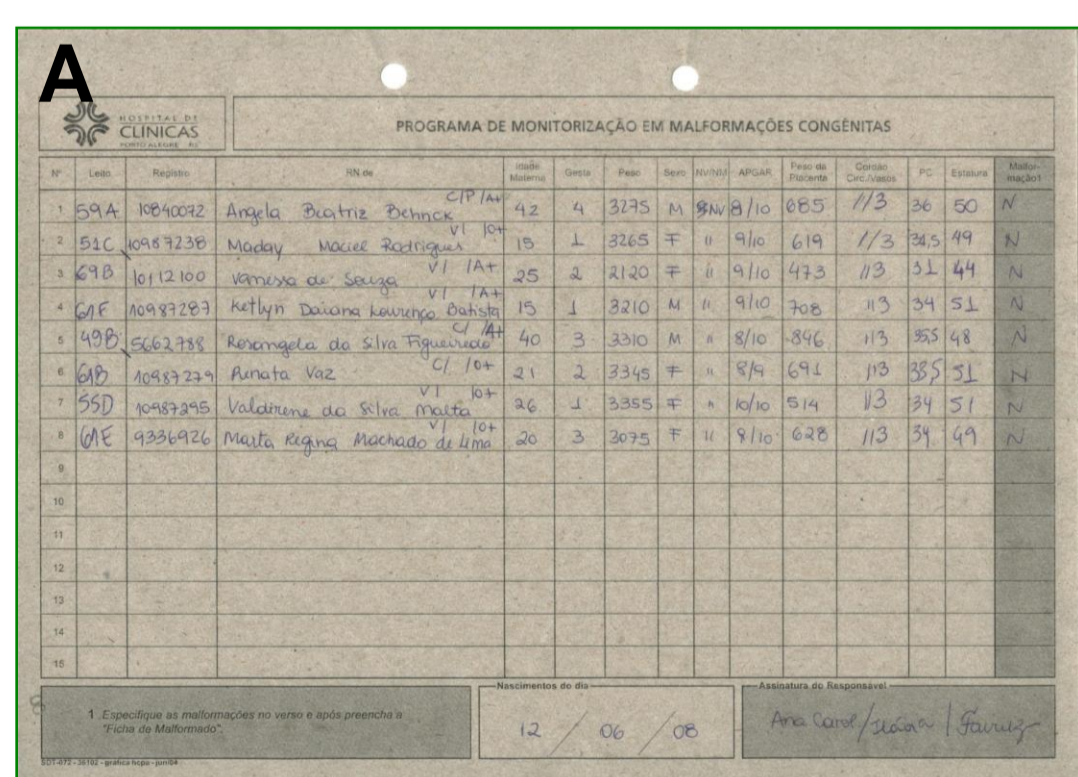 A
HOSPITAL DE
CLÍNICAS
PORTO ALEGRE RS
PROGRAMA DE MONITORIZAÇÃO EM MALFORMAÇÕES CONGÊNITAS
Nº Leito Registro RN de Idade Materna Gesta Peso Sexo NV/NM APGAR Peso da Placenta Cordão Circ./Vasos PC Estatura Malformação1
1 59A 10840072 Angela Beatriz Behnck C/P/A+ 42 4 3275 M NV 8/10 685 1/3 36 50 N
2 51C 10987238 Maday Maciel Rodrigues V/ 10+ 15 1 3265 F 11 9/10 619 1/3 34,5 49 N
3 69B 10112100 Vanessa de Souza V/ 1A+ 25 2 2120 F 11 9/10 473 1/3 31 44 N
4 61F 10987287 Ketlyn Daiana Lourenço Batista V/ 1A+ 15 1 3210 M 11 9/10 708 1/3 34 51 N
5 49B 5662788 Rosangela da Silva Figueiredo C/ 1A+ 40 3 3310 M 11 8/10 846 1/3 35,5 48 N
6 61B 10987279 Renata Vaz C/ 10+ 21 2 3345 F 11 8/9 691 1/3 38,5 51 N
7 55D 10987295 Valdirene da Silva Maita V/ 10+ 26 1 3355 F 11 10/10 514 1/3 34 51 N
8 61E 9336926 Marta Regina Machado de Lima V/ 10+ 20 3 3075 F 11 8/10 628 1/3 34 49 N
9
10
11
12
13
14
15
1 Especifique as malformações no verso e após preencha a
"Ficha de Malformado".
Nascimentos do dia
12 / 06 / 08
Assinatura do Responsável
Ana Carol /
SDT-072 - 36102 - gráfica hcpa - jun/04